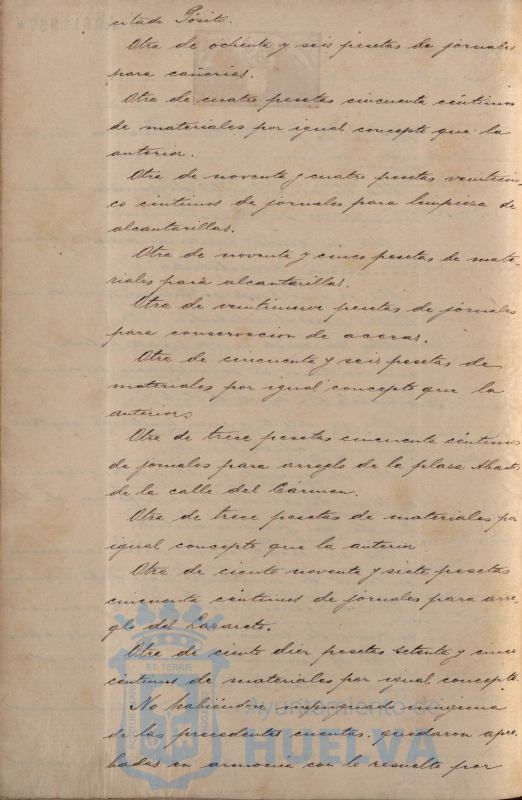 citado Pósito.
Otra de ochenta y seis pesetas de jornales
para cañerias.
Otra de cuatro pesetas cincuenta céntimos
de materiales por igual concepto que la
anterior.
Otra de noventa y cuatro pesetas veinticin-
co céntimos de jornales para limpieza de
alcantarillas.
Otra de noventa y cinco pesetas de mate-
riales para alcantarillas.
Otra de veintinueve pesetas de jornales
para conservacion de aceras.
Otra de cincuenta y seis pesetas de
materiales por igual concepto que la
anterior.
Otra de trece pesetas cincuenta céntimos
de jornales para arreglo de la plaza Abastos
de la calle del Cármen.
Otra de trece pesetas de materiales por
igual concepto que la anterior
Otra de ciento noventa y siete pesetas
cincuenta céntimos de jornales para arre-
glo del Lazareto.
Otra de ciento diez pesetas setenta y cinco
céntimos de materiales por igual concepto.
No habiéndose impugnado ninguna
de las precedentes cuentas quedaron apro-
badas en armonia con lo resuelto por
Ayuntamiento de
HUELVA
ET TERRÆ
PORTUS MARIS
CUSTODIA